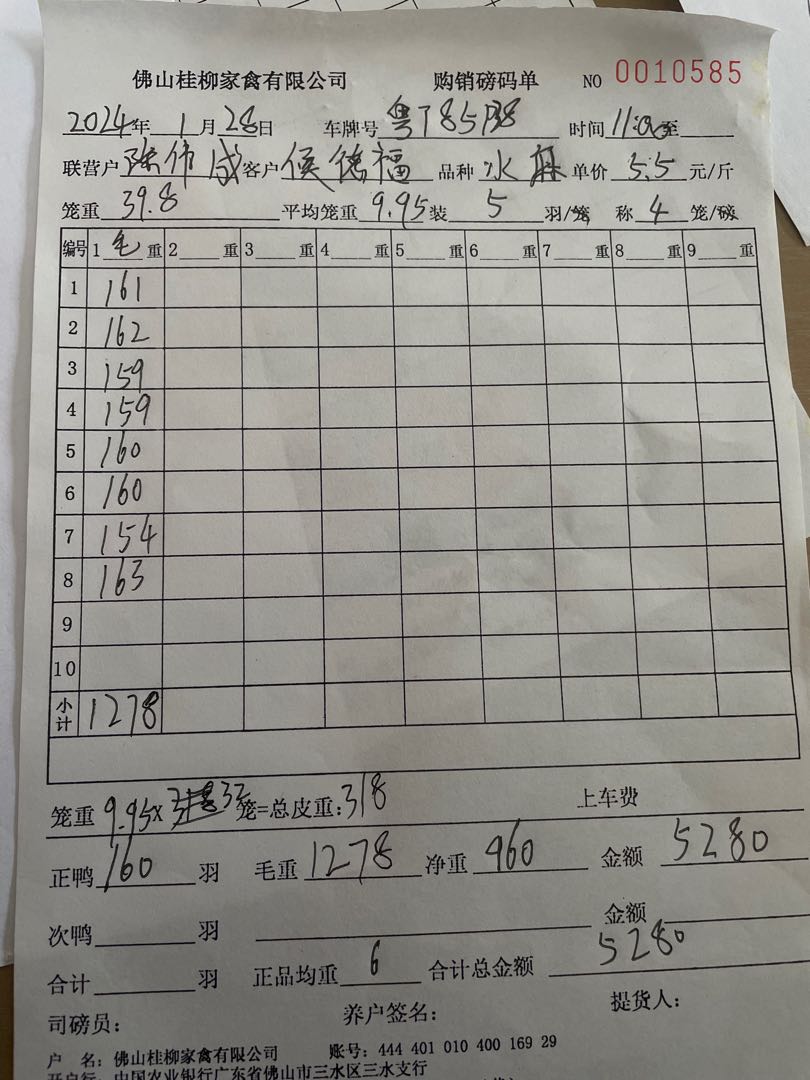 佛山桂柳家禽有限公司 购销磅码单 NO 0010585
2024年 1月28日 车牌号 粤T85 时间 11: 至
联营户 陈伟成 客户 侯德福 品种 水麻 单价 5.5 元/斤
笼重 39.8 平均笼重 9.95 装 5 羽/笼 称 4 笼/磅
编号 1 毛 重 2 重 3 重 4 重 5 重 6 重 7 重 8 重 9 重
1 161
2 162
3 159
4 159
5 160
6 160
7 154
8 163
9
10
小计 1278
笼重 9.95x 32 笼=总皮重: 318 上车费
正鸭 160 羽 毛重 1278 净重 960 金额 5280
次鸭 羽 金额
合计 羽 正品均重 6 合计总金额 5280
司磅员: 养户签名: 提货人:
户 名: 佛山桂柳家禽有限公司 账号: 444 401 010 400 169 29
开户行: 中国农业银行广东省佛山市三水区三水支行